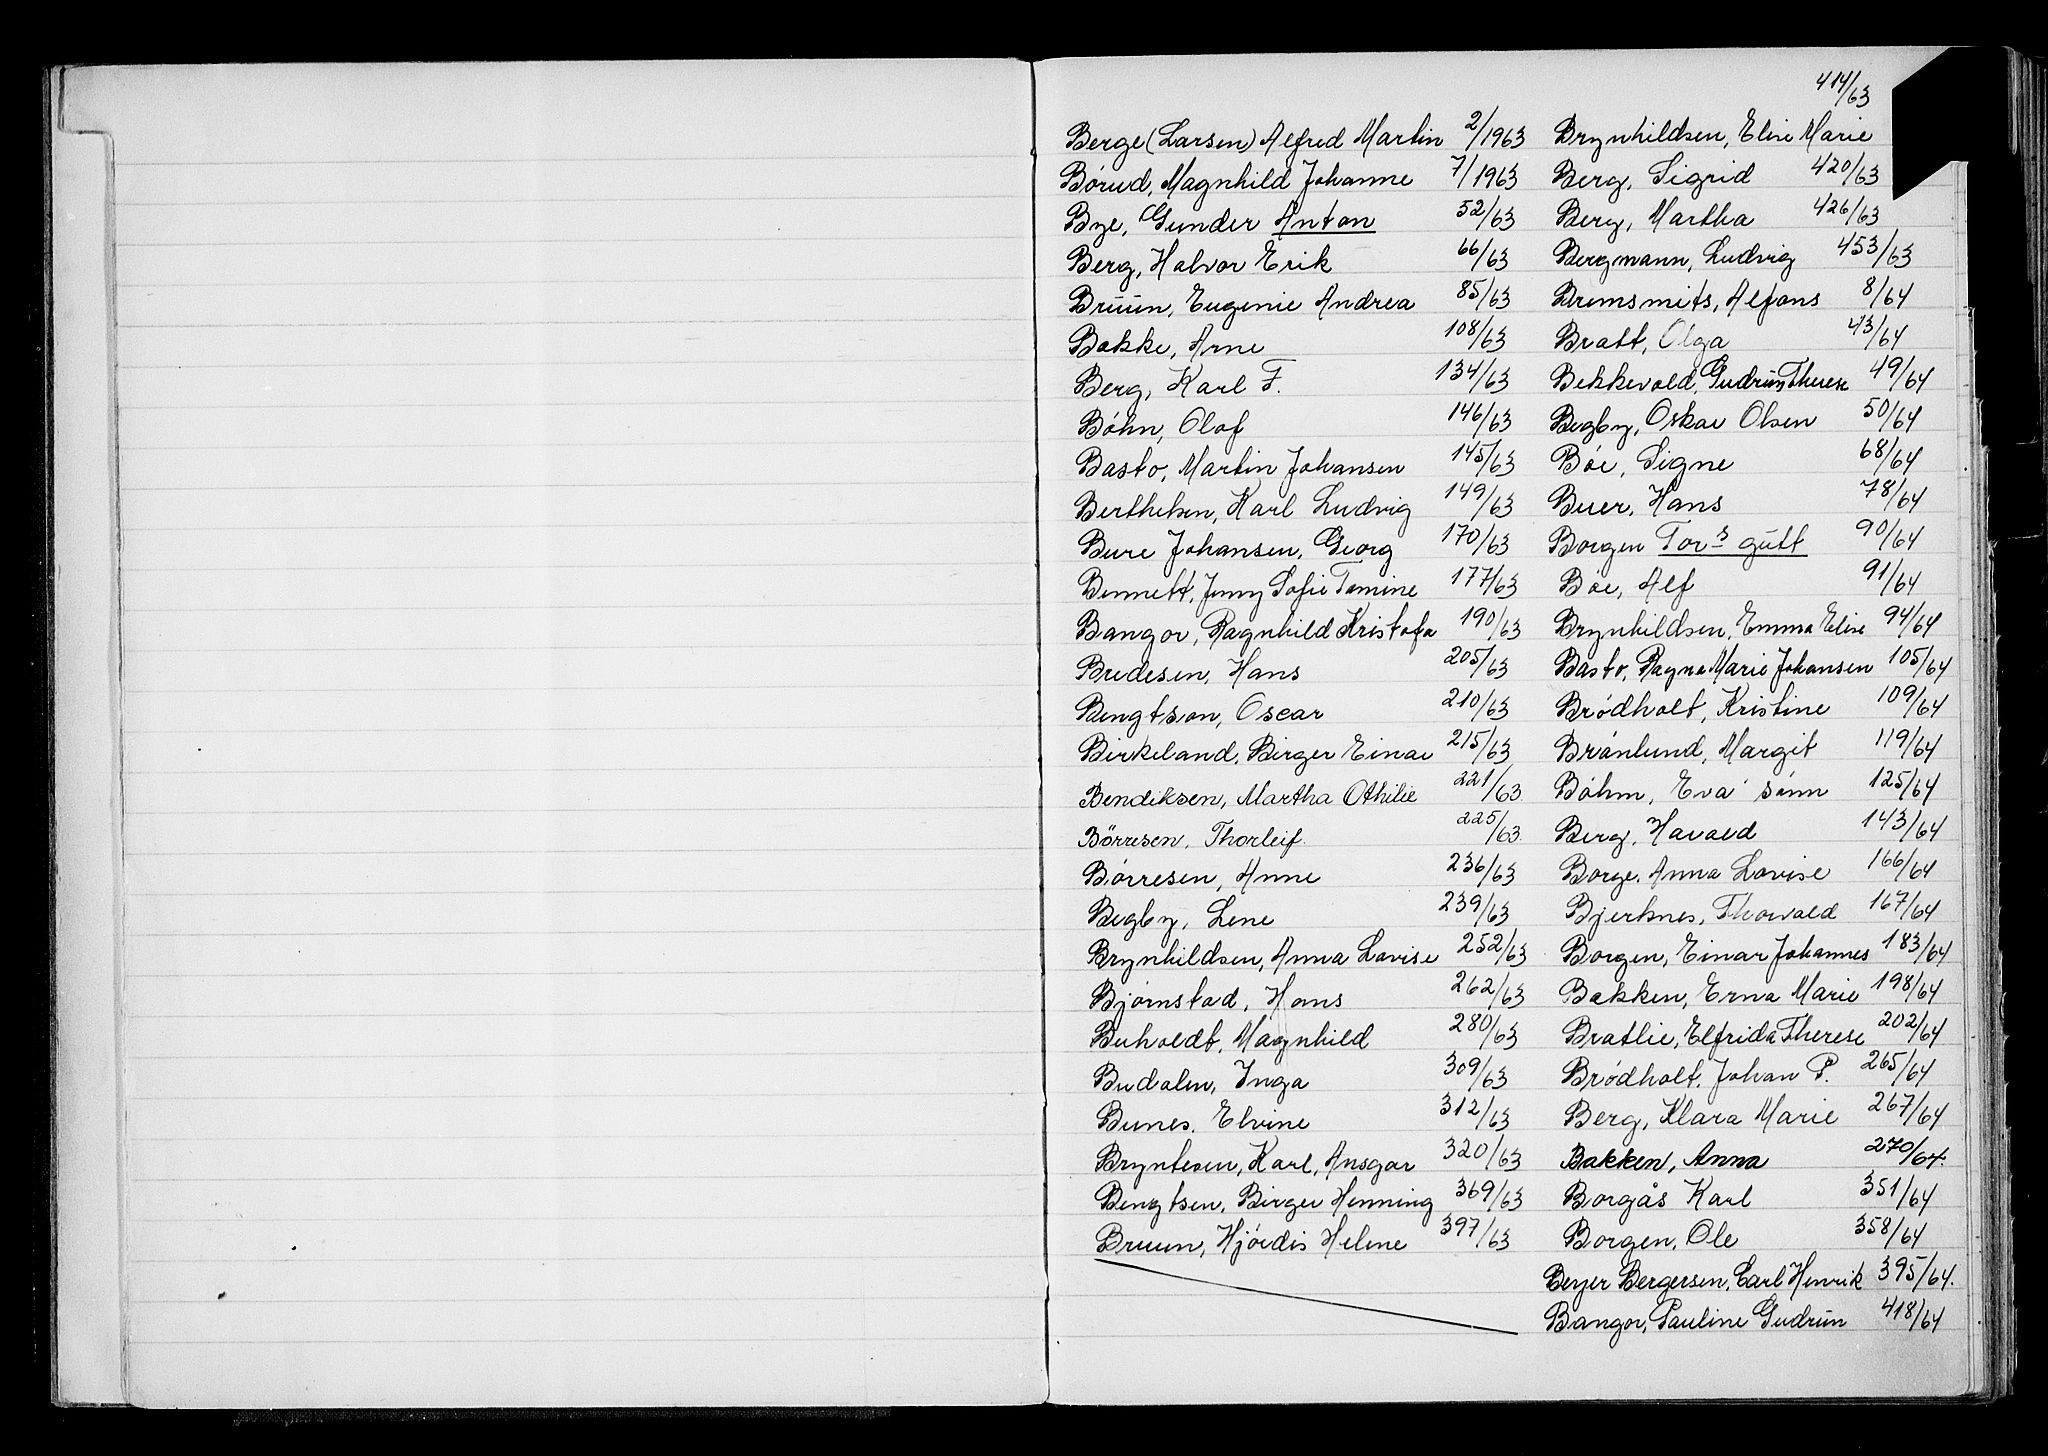 Berge (Larsen) Alfred Martin 2/1963
Börud, Magnhild Johanne 7/1963
Bye, Gunder Anton 52/63
Berg, Halvor Erik 66/63
Bruun, Eugenie Andrea 85/63
Bakke, Arne 108/63
Berg, Karl F. 134/63
Böhn, Olaf 146/63
Bastø, Martin Johansen 145/63
Berthelsen, Karl Ludvig 149/63
Bure Johansen, Georg 170/63
Bennett, Jenny Sofie Tomine 177/63
Bangor, Ragnhild Kristofa 190/63
Bredesen, Hans 205/63
Bengtson, Oscar 210/63
Birkeland, Birger Einar 215/63
Bendiksen, Martha Othilie 221/63
Börresen, Thorleif. 225/63
Börresen, Anne 236/63
Begby, Lene 239/63
Brynhildsen, Anna Lovise 252/63
Björnstad, Hans 262/63
Buholdt, Magnhild 280/63
Budalen, Inga 309/63
Bunes, Elvine 312/63
Bryntesen, Karl, Ansgar 320/63
Bengtsen, Birger Henning 369/63
Bruun, Hjördis Helene 397/63
414/63
Brynhildsen, Elise Marie
Berg, Sigrid 420/63
Berg, Martha 426/63
Bergmann, Ludvig 453/63
Bremsmits, Alfons 8/64
Bratt, Olga 43/64
Bekkevold, Gudrun Therese 49/64
Begby, Oskar Olsen 50/64
Böe, Signe 68/64
Buer, Hans 78/64
Borgen Tor's gutt 90/64
Böe, Alf 91/64
Brynhildsen, Emma Elise 94/64
Bastø, Ragna Marie Johansen 105/64
Brödholt, Kristine 109/64
Brånlund, Margit 119/64
Böhm, Eva' sönn 125/64
Berg, Havald 143/64
Borge, Anna Lovise 166/64
Bjerknes, Thorvald 167/64
Borgen, Einar Johannes 183/64
Bakken, Erna Marie 198/64
Bratlie, Elfrida Therese 202/64
Brödholt, Johan P. 265/64
Berg, Klara Marie 267/64
Bakken, Anna 270/64.
Borgås Karl 351/64
Borgen, Ole 358/64
Beyer Bergersen, Carl Henrik 395/64.
Bangor, Pauline Gudrun 418/64